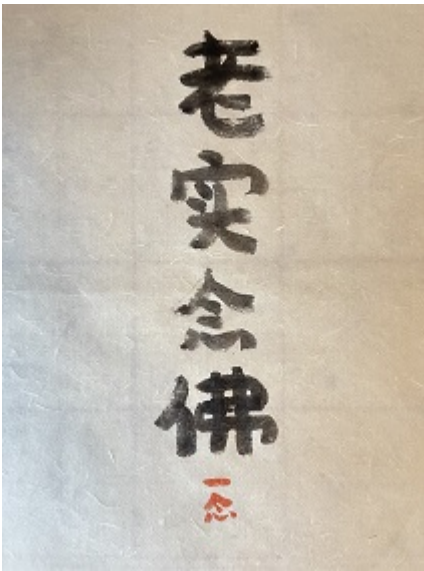 老实念佛
一念